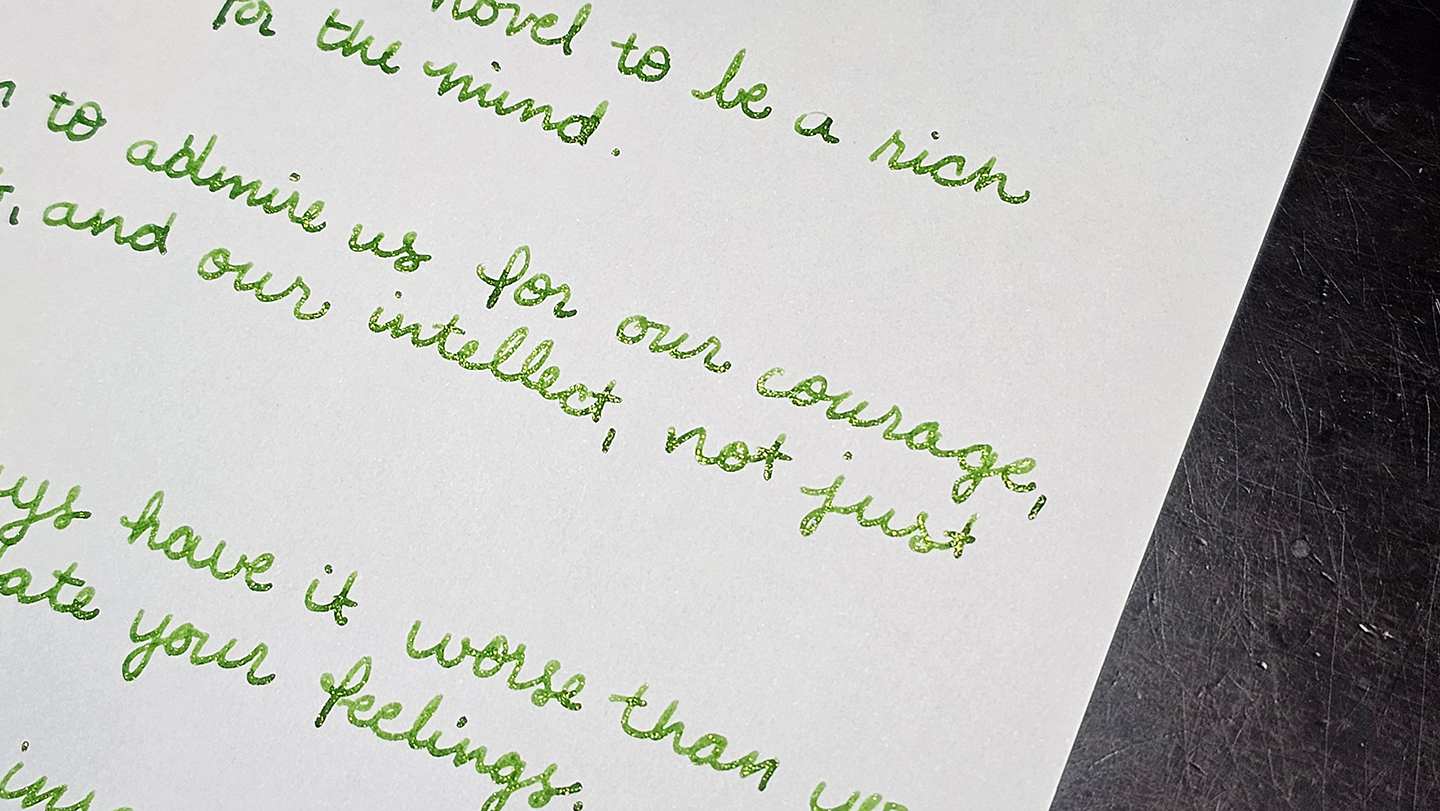 novel to be a rich
for the mind.
to admire us for our courage,
and our intellect, not just
have it worse than
your feelings.